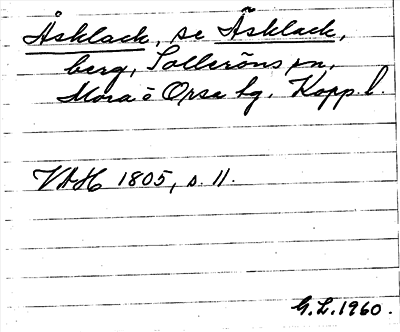 Åsklack, se Äsklack,
berg, Solleröns sn,
Mora o Orsa hg. Kopp. l.
VAH 1805, s. 11.
G.L. 1960.